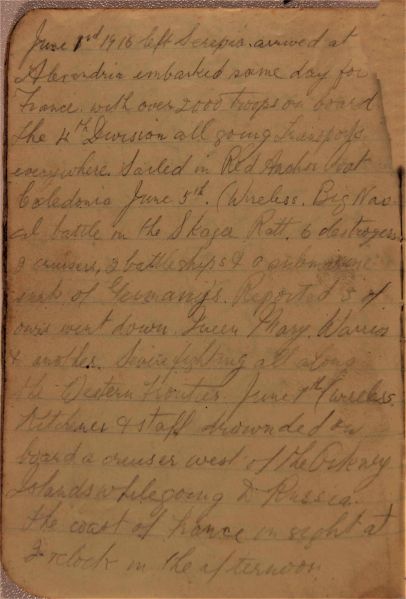 June 1st 1916 left Serepia. arrived at
Alexandria embarked same day for
France. with over 2000 troops on board
the 4th Division all going transports
everywhere. Sailed in Red Anchor boat
Caledonia June 5th. (Wireless. Big Nav
al battle in the Skaga Ratt. 6 destroyers
2 cruisers, 2 battleships & a submarine
sunk of Germany's. Reported 3 of
ours went down. Queen Mary Warrior
& another. Severe fighting all along
the Western Frontier. June 7th (wireless.
Kitchener & staff drownded on
board a cruiser west of the Orkney
Islands while going to Russia.
The coast of France in sight at
2 oclock in the afternoon